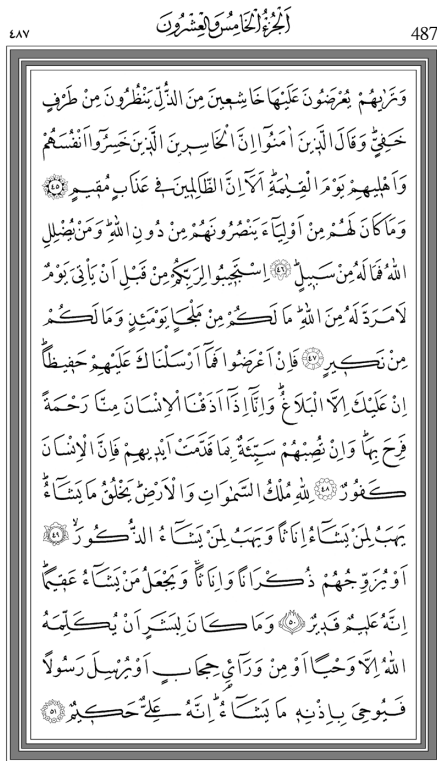 ٤٨٧ اَلْجُزْءُ الْخَامِسُ وَالْعِشْرُونَ 487
وَتَرٰيهُمْ يُعْرَضُونَ عَلَيْهَا خَاشِعِينَ مِنَ الذُّلِّ يَنْظُرُونَ مِنْ طَرْفٍ
خَفِيٍّۜ وَقَالَ الَّذِينَ اٰمَنُٓوا اِنَّ الْخَاسِرِينَ الَّذِينَ خَسِرُٓوا اَنْفُسَهُمْ
وَاَهْلِيهِمْ يَوْمَ الْقِيٰمَةِۜ اَلَٓا اِنَّ الظَّالِمِينَ فِي عَذَابٍ مُقِيمٍ ﴿٤٥﴾
وَمَا كَانَ لَهُمْ مِنْ اَوْلِيَٓاءَ يَنْصُرُونَهُمْ مِنْ دُونِ اللّٰهِۜ وَمَنْ يُضْلِلِ
اللّٰهُ فَمَا لَهُ مِنْ سَبِيلٍۜ ﴿٤٦﴾ اِسْتَجِيبُوا لِرَبِّكُمْ مِنْ قَبْلِ اَنْ يَأْتِيَ يَوْمٌ
لَا مَرَدَّ لَهُ مِنَ اللّٰهِۜ مَا لَكُمْ مِنْ مَلْجَأٍ يَوْمَئِذٍ وَمَا لَكُمْ
مِنْ نَكِيرٍ ﴿٤٧﴾ فَاِنْ اَعْرَضُوا فَمَٓا اَرْسَلْنَاكَ عَلَيْهِمْ حَفِيظًاۜ
اِنْ عَلَيْكَ اِلَّا الْبَلَاغُۜ وَاِنَّٓا اِذَٓا اَذَقْنَا الْاِنْسَانَ مِنَّا رَحْمَةً
فَرِحَ بِهَاۚ وَاِنْ تُصِبْهُمْ سَيِّئَةٌ بِمَا قَدَّمَتْ اَيْدِيهِمْ فَاِنَّ الْاِنْسَانَ
كَفُورٌ ﴿٤٨﴾ لِلّٰهِ مُلْكُ السَّمٰوَاتِ وَالْاَرْضِۜ يَخْلُقُ مَا يَشَٓاءُۜ
يَهَبُ لِمَنْ يَشَٓاءُ اِنَاثًا وَيَهَبُ لِمَنْ يَشَٓاءُ الذُّكُورَۙ ﴿٤٩﴾
اَوْ يُزَوِّجُهُمْ ذُكْرَانًا وَاِنَاثًاۚ وَيَجْعَلُ مَنْ يَشَٓاءُ عَقِيمًاۜ
اِنَّهُ عَلِيمٌ قَدِيرٌ ﴿٥٠﴾ وَمَا كَانَ لِبَشَرٍ اَنْ يُكَلِّمَهُ
اللّٰهُ اِلَّا وَحْيًا اَوْ مِنْ وَرَٓائِ حِجَابٍ اَوْ يُرْسِلَ رَسُولًا
فَيُوحِيَ بِاِذْنِهِ مَا يَشَٓاءُۜ اِنَّهُ عَلِيٌّ حَكِيمٌ ﴿٥١﴾